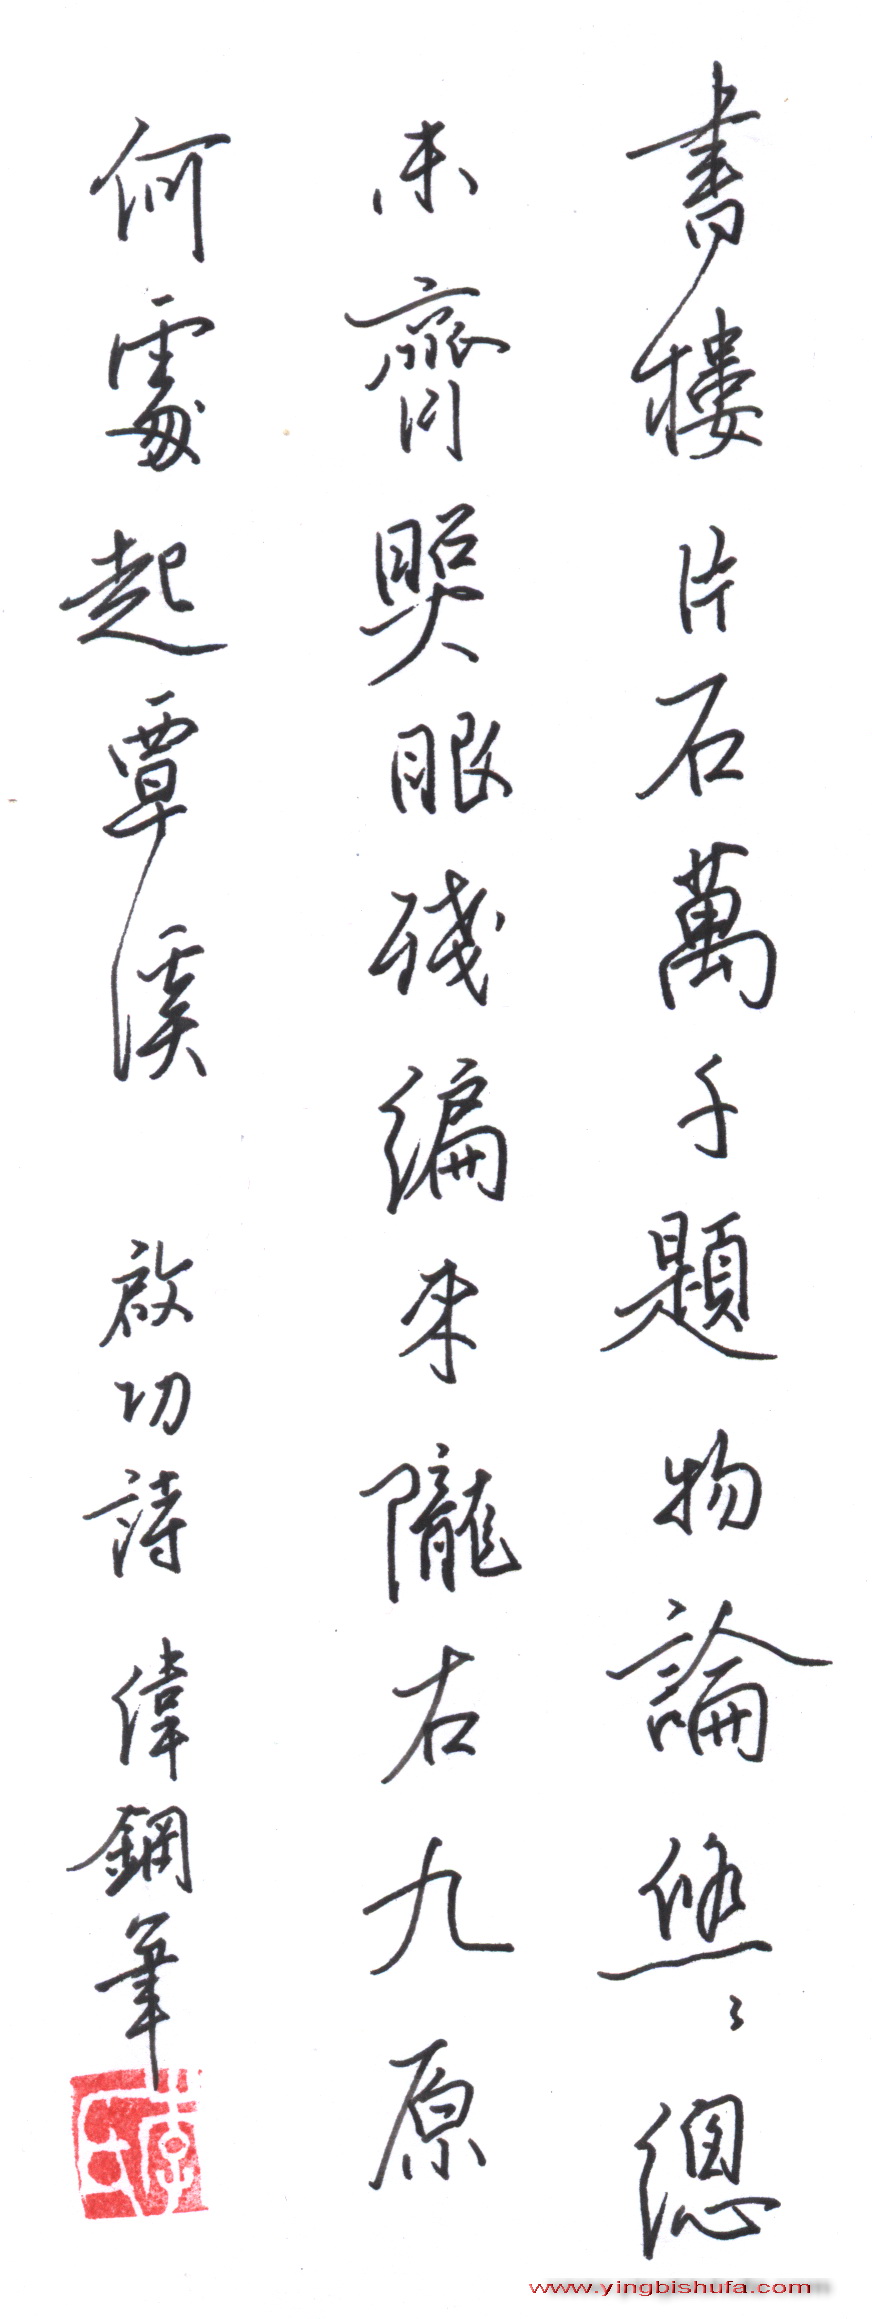 書樓片石萬千題物論悠〻總
未齊照眼殘編来隴右九原
何處起覃溪
啟功詩偉鋼筆
李氏
www.yingbishufa.com